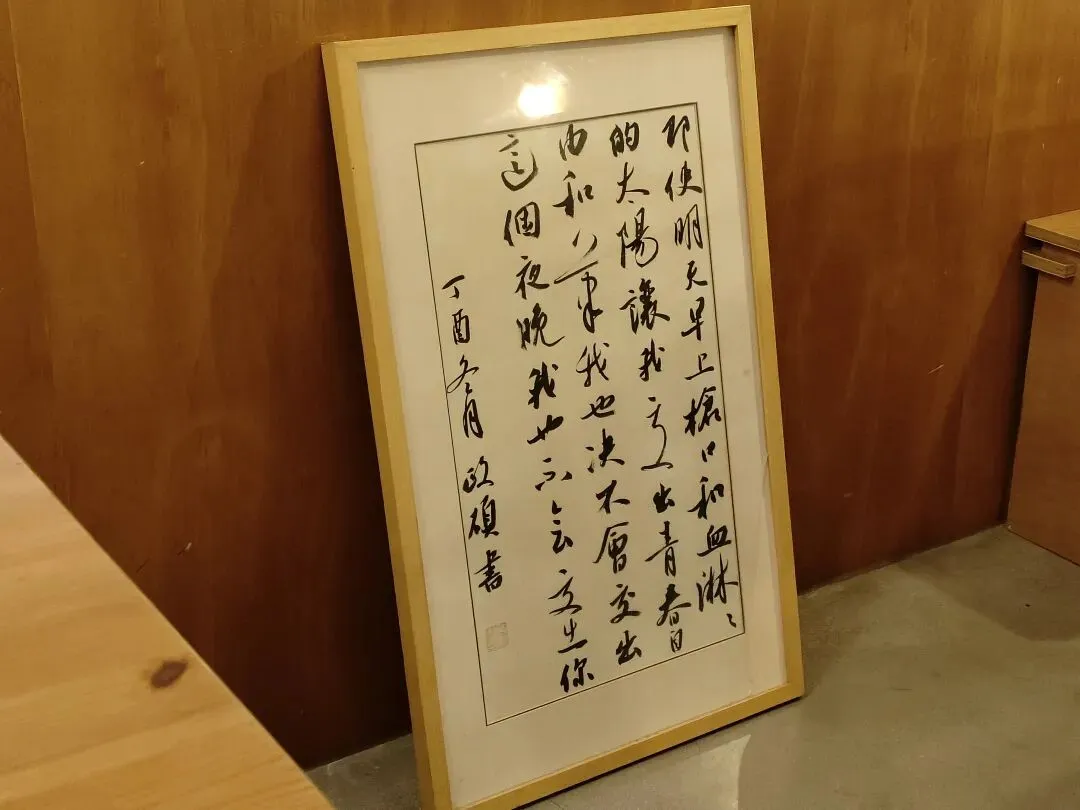 即使明天早上槍口和血淋〻
的太陽讓我交出青春自
由和筆我也決不會交出
這個夜晚我也不会交出你
丁酉冬月 政碩書